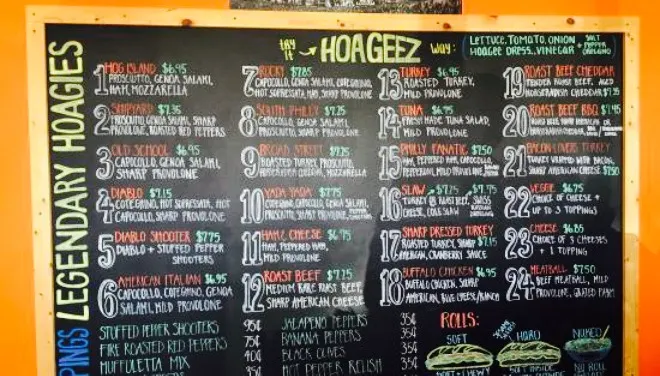 LEGENDARY HOAGIES
TRY IT → HOAGEEZ WAY:
LETTUCE, TOMATO, ONION
HOAGEE DRESS, VINEGAR
SALT + PEPPER
OREGANO
1 HOG ISLAND $6.95
PROSCIUTTO, GENOA SALAMI,
HAM, MOZZARELLA
2 SHIPYARD $7.35
PROSCIUTTO, GENOA SALAMI, SHARP
PROVOLONE, ROASTED RED PEPPERS
3 OLD SCHOOL $6.95
CAPOCOLLO, GENOA SALAMI,
SHARP PROVOLONE
4 DIABLO $7.15
COTEGHINO, HOT SOPRESSATA, HOT
CAPOCOLLO, SHARP PROVOLONE
5 DIABLO SHOOTER $7.75
DIABLO + STUFFED PEPPER
SHOOTERS
6 AMERICAN ITALIAN $6.95
CAPOCOLLO, COTEGHINO, GENOA
SALAMI, MILD PROVOLONE
7 ROCKY $7.85
CAPOCOLLO, GENOA SALAMI, COTEGHINO,
HOT SOPRESSATA, HAM, SHARP PROVOLONE
8 SOUTH PHILLY $7.25
CAPOCOLLO, GENOA SALAMI,
PROSCIUTTO, SHARP PROVOLONE
9 BROAD STREET $7.25
ROASTED TURKEY, PROSCIUTTO,
MOZZARELLA
10 YADA YADA $7.75
COTEGHINO, CAPOCOLLO, GENOA SALAMI,
PROSCIUTTO, SHARP PROVOLONE
11 HAM & CHEESE $6.75
HAM, PEPPERED HAM,
MILD PROVOLONE
12 ROAST BEEF $7.75
MEDIUM RARE ROAST BEEF,
SHARP AMERICAN CHEESE
13 TURKEY $6.95
ROASTED TURKEY,
MILD PROVOLONE
14 TUNA $6.75
FRESH MADE TUNA SALAD,
MILD PROVOLONE
15 PHILLY FANATIC $7.50
HAM, PEPPERED HAM, CAPOCOLLO,
PEPPERONI, MILD PROVOLONE
16 SLAW → $7.75 $7.75
TURKEY OR ROAST BEEF, SWISS
CHEESE, COLE SLAW RUSSIAN
17 SHARP DRESSED TURKEY
ROASTED TURKEY, SHARP $7.15
AMERICAN, CRANBERRY SAUCE
18 BUFFALO CHICKEN $6.95
BUFFALO CHICKEN, SHARP
AMERICAN, BLUE CHEESE/RANCH
19 ROAST BEEF CHEDDAR
TENDER ROAST BEEF, AGED
HORSERADISH CHEDDAR $7.95
20 ROAST BEEF BBQ $7.95
21 BACON LOVERS TURKEY
TURKEY WRAPPED WITH BACON,
SHARP AMERICAN CHEESE $7.50
22 VEGGIE $6.75
CHOICE OF CHEESE +
UP TO 3 TOPPINGS
23 CHEESE $6.85
CHOICE OF 3 CHEESES
+ 1 TOPPING
24 MEATBALL $7.50
BEEF MEATBALL, MILD
PROVOLONE, GRATED PARM
PINGS
STUFFED PEPPER SHOOTERS 95¢
FIRE ROASTED RED PEPPERS 75¢
MUFFULETTA MIX 40¢
JALAPENO PEPPERS 35¢
BANANA PEPPERS 35¢
BLACK OLIVES 35¢
HOT PEPPER RELISH 35¢
ROLLS:
SOFT
SESAME SEEDS
HARD
NAKED
SOFT + CHEWY
SOFT INSIDE
NO ROLL